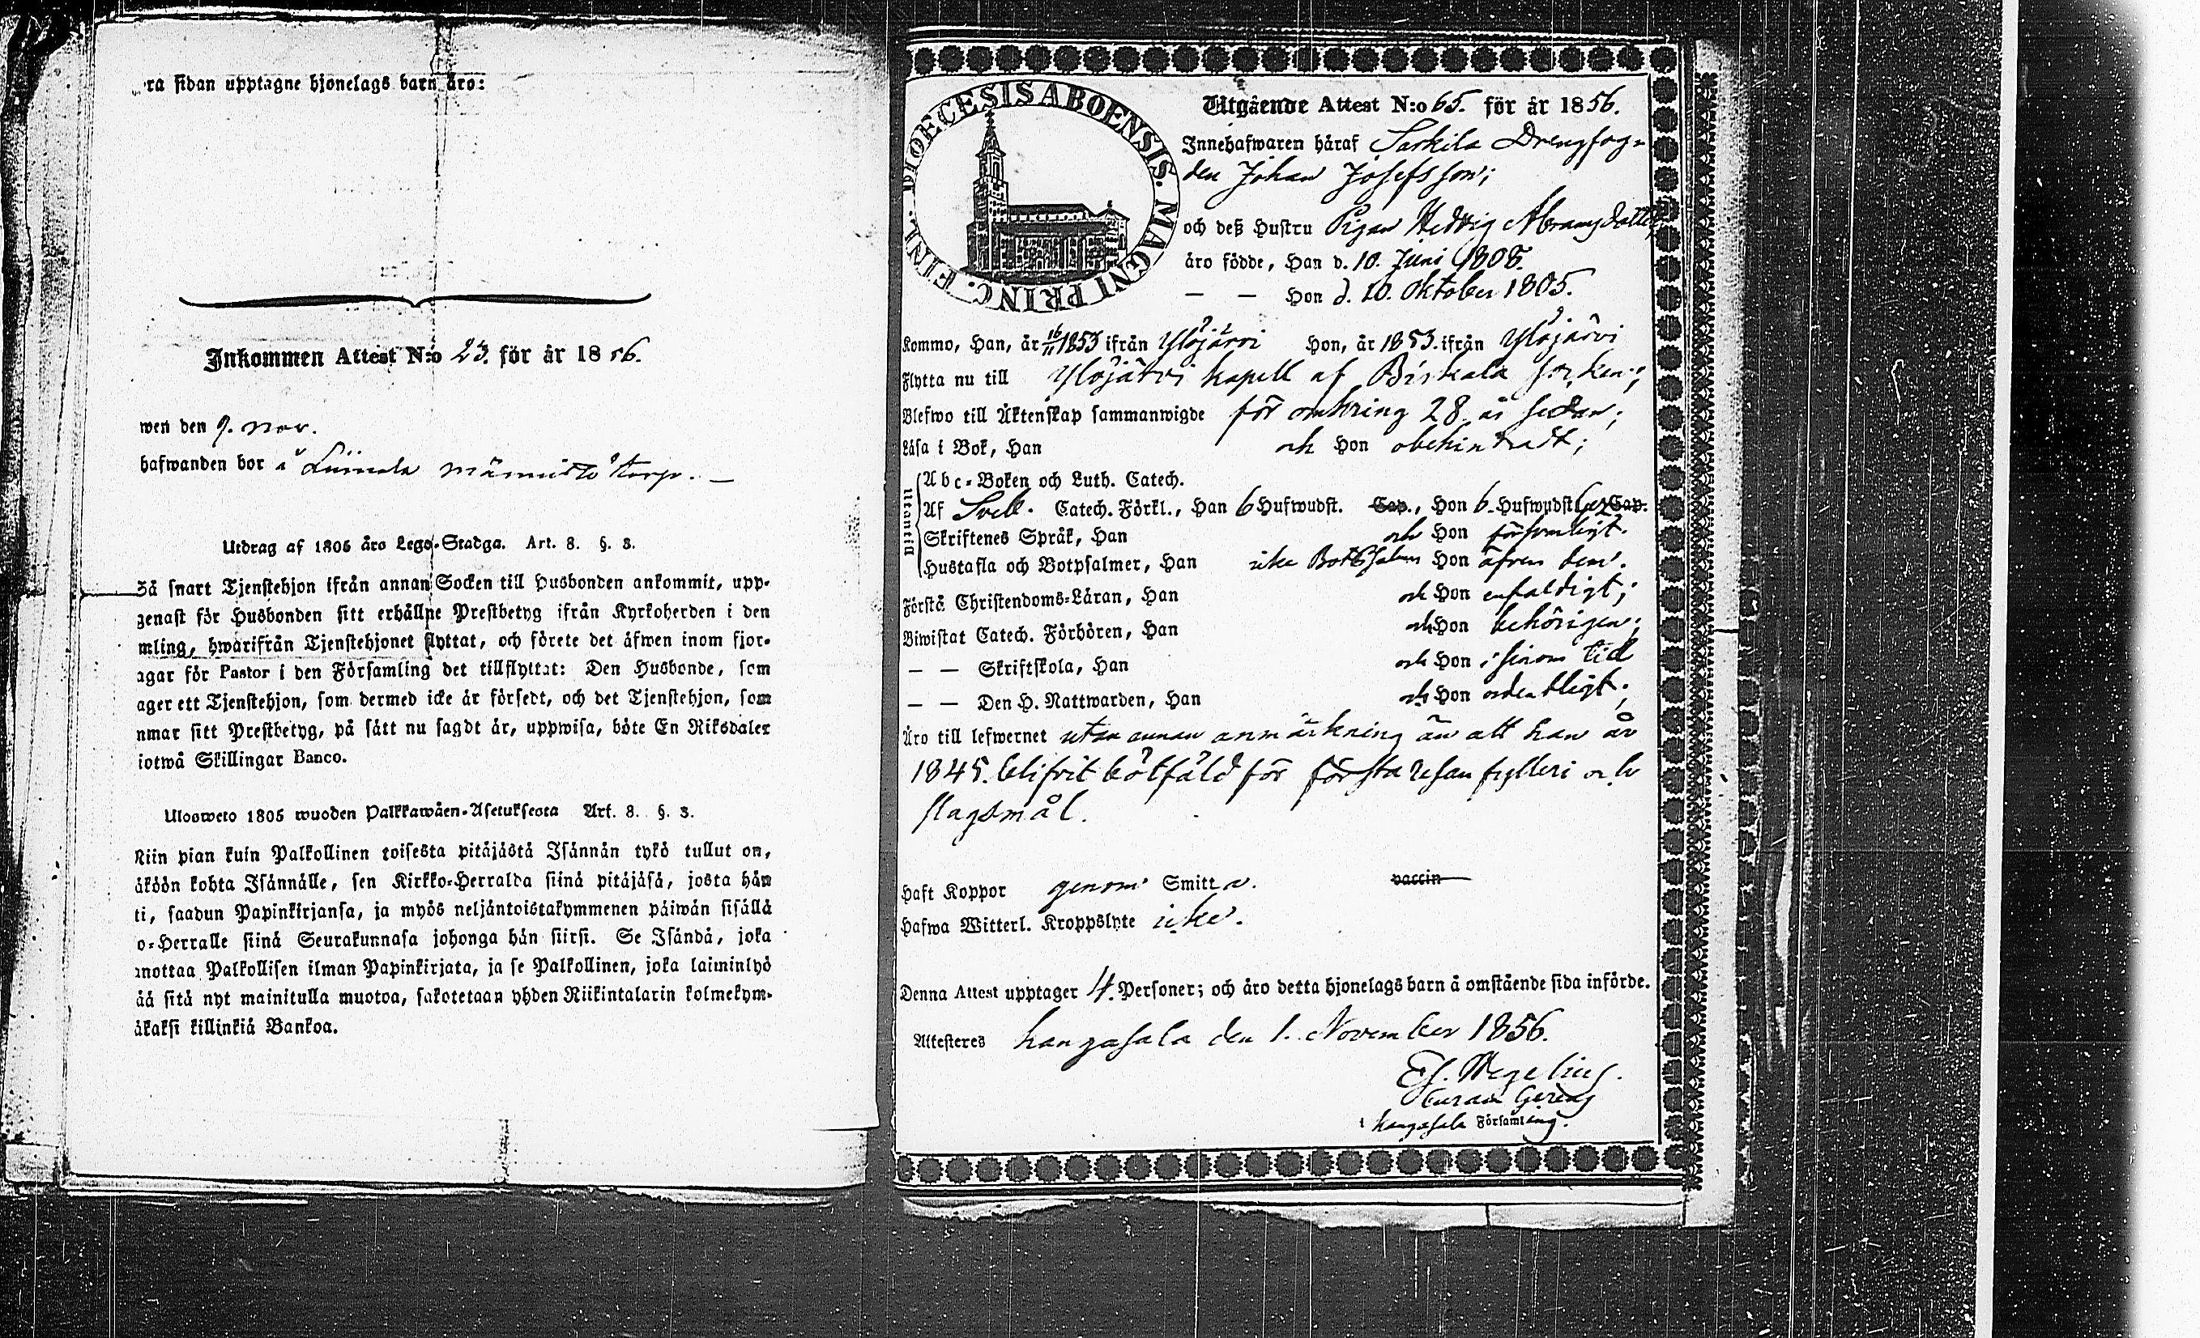 ra sidan upptagne hjonelags barn äro:
Inkommen Attest N:o 23. för år 1856.
wen den 9. Nov.
hafwanden bor å Männistö torp. —
Utdrag af 1805 års Lego-Stadga. Art. 8. §. 3.
Så snart Tjenstehjon ifrån annan Socken till Husbonden ankommit, upp-
genast för Husbonden sitt erhållne Prestbetyg ifrån Kyrkoherden i den
mling, hwarifrån Tjenstehjonet flyttat, och förete det äfwen inom fjor-
agar för Pastor i den Församling det tillflyttat: Den Husbonde, som
ager ett Tjenstehjon, som dermed icke är försedt, och det Tjenstehjon, som
nmar sitt Prestbetyg, på sätt nu sagdt är, uppwisa, böte En Riksdaler
iotwå Skillingar Banco.
Ulosweto 1805 wuoden Palkkawäen-Asetuksesta Art. 8. §. 3.
Niin pian kuin Palkollinen toisesta pitäjästä Isännän tykö tullut on,
äköön kohta Isännälle, sen Kirkko-Herralda siinä pitäjäsä, josta hän
ti, saadun Papinkirjansa, ja myös neljäntoistakymmenen päiwän sisällä
o-Herralle siinä Seurakunnasa johonga hän siirsi. Se Isändä, joka
anottaa Palkollisen ilman Papinkirjata, ja se Palkollinen, joka laiminlyö
ää sitä nyt mainitulla muotoa, sakotetaan yhden Riikintalarin kolmekym-
äkaksi killinkiä Bankoa.
DIOECESIS ABOENSIS. MAGNI PRINC. FINL.
Utgående Attest N:o 65. för år 1856.
Innehafwaren häraf Sarkila Drengfog-
den Johan Josefsson;
och deß Hustru Pigan Hedvig Abramsdotter
äro födde, Han d. 10. Juni 1808.
— — Hon d. 20. Oktober 1805.
Kommo, Han, år 16/11 1853 ifrån Ylöjärvi Hon, år 1853. ifrån Ylöjärvi
Flytta nu till Ylöjärvi kapell af Birkala socken;
Blefwo till Äktenskap sammanwigde för omkring 28 år sedan;
Läsa i Bok, Han och Hon obehindradt;
Utantill
Abc-Boken och Luth. Catech.
Af Sveb. Catech. Förkl., Han 6 Hufwudst. Cap., Hon 6. Hufwudst. Cap.
Skriftenes Språk, Han och Hon försvarligt.
Hustafla och Botpsalmer, Han icke Botpsalmer Hon äfven dem.
Förstå Christendoms-Läran, Han och Hon enfaldigt;
Biwistat Catech. Förhören, Han och Hon behörigen;
— — Skriftskola, Han och Hon i sinom tid
— — Den H. Nattwarden, Han och Hon ordentligt;
Äro till lefwernet utan annan anmärkning än att han år
1845. blifvit bötfäld för första resan fylleri och
slagsmål.
Haft Koppor genom Smitta. vaccin
Hafwa Witterl. Kroppslyte icke.
Denna Attest upptager 4. Personer; och äro detta hjonelags barn å omstående sida införde.
Attesteres Kangasala den 1. November 1856.
Ef. Wegelius.
i Kangasala Församling.